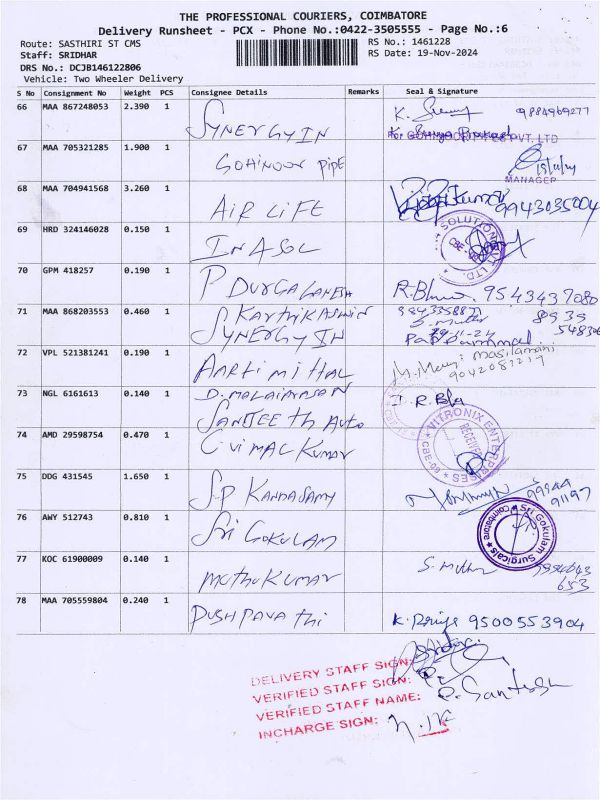 THE PROFESSIONAL COURIERS, COIMBATORE
Delivery Runsheet - PCX - Phone No.:0422-3505555 - Page No.:6
Route: SASTHIRI ST CMS
RS No.: 1461228
Staff: SRIDHAR
RS Date: 19-Nov-2024
DRS No.: DCJB146122806
Vehicle: Two Wheeler Delivery
S No Consignment No Weight PCS Consignee Details Remarks Seal & Signature
66 MAA 867248053 2.390 1 SYNERGY IN K. 9884969277
67 MAA 705321285 1.900 1 GOHINOOR PIPE PVT. LTD
MANAGER
68 MAA 704941568 3.260 1 AIR LIFE 9943035004
69 HRD 324146028 0.150 1 INASOL SOLUTION LTD.
70 GPM 418257 0.190 1 P DURGA GANESH R. 9543437080
71 MAA 868203553 0.460 1 S KARTHIK ASHWIN
SYNERGY IN
72 VPL 521381241 0.190 1 AARTI MITHAL M. masilamani
73 NGL 6161613 0.140 1 D. MALAIARASAN
SANJEETH AUTO
74 AMD 29598754 0.470 1 C VIMAL KUMAR VITRONIX ENTERPRISES RECEIVED CBE-09
75 DDG 431545 1.650 1 S.P KANDASAMY 99944
91197
76 AWY 512743 0.810 1 Sri GOKULAM Sri Gokulam Surgicals Coimbatore
77 KOC 61900009 0.140 1 MUTHUKUMAR S. Muthu
653
78 MAA 705559804 0.240 1 PUSHPAVATHI K. 9500553904
DELIVERY STAFF SIGN:
VERIFIED STAFF SIGN:
VERIFIED STAFF NAME: P. Santosh
INCHARGE SIGN: